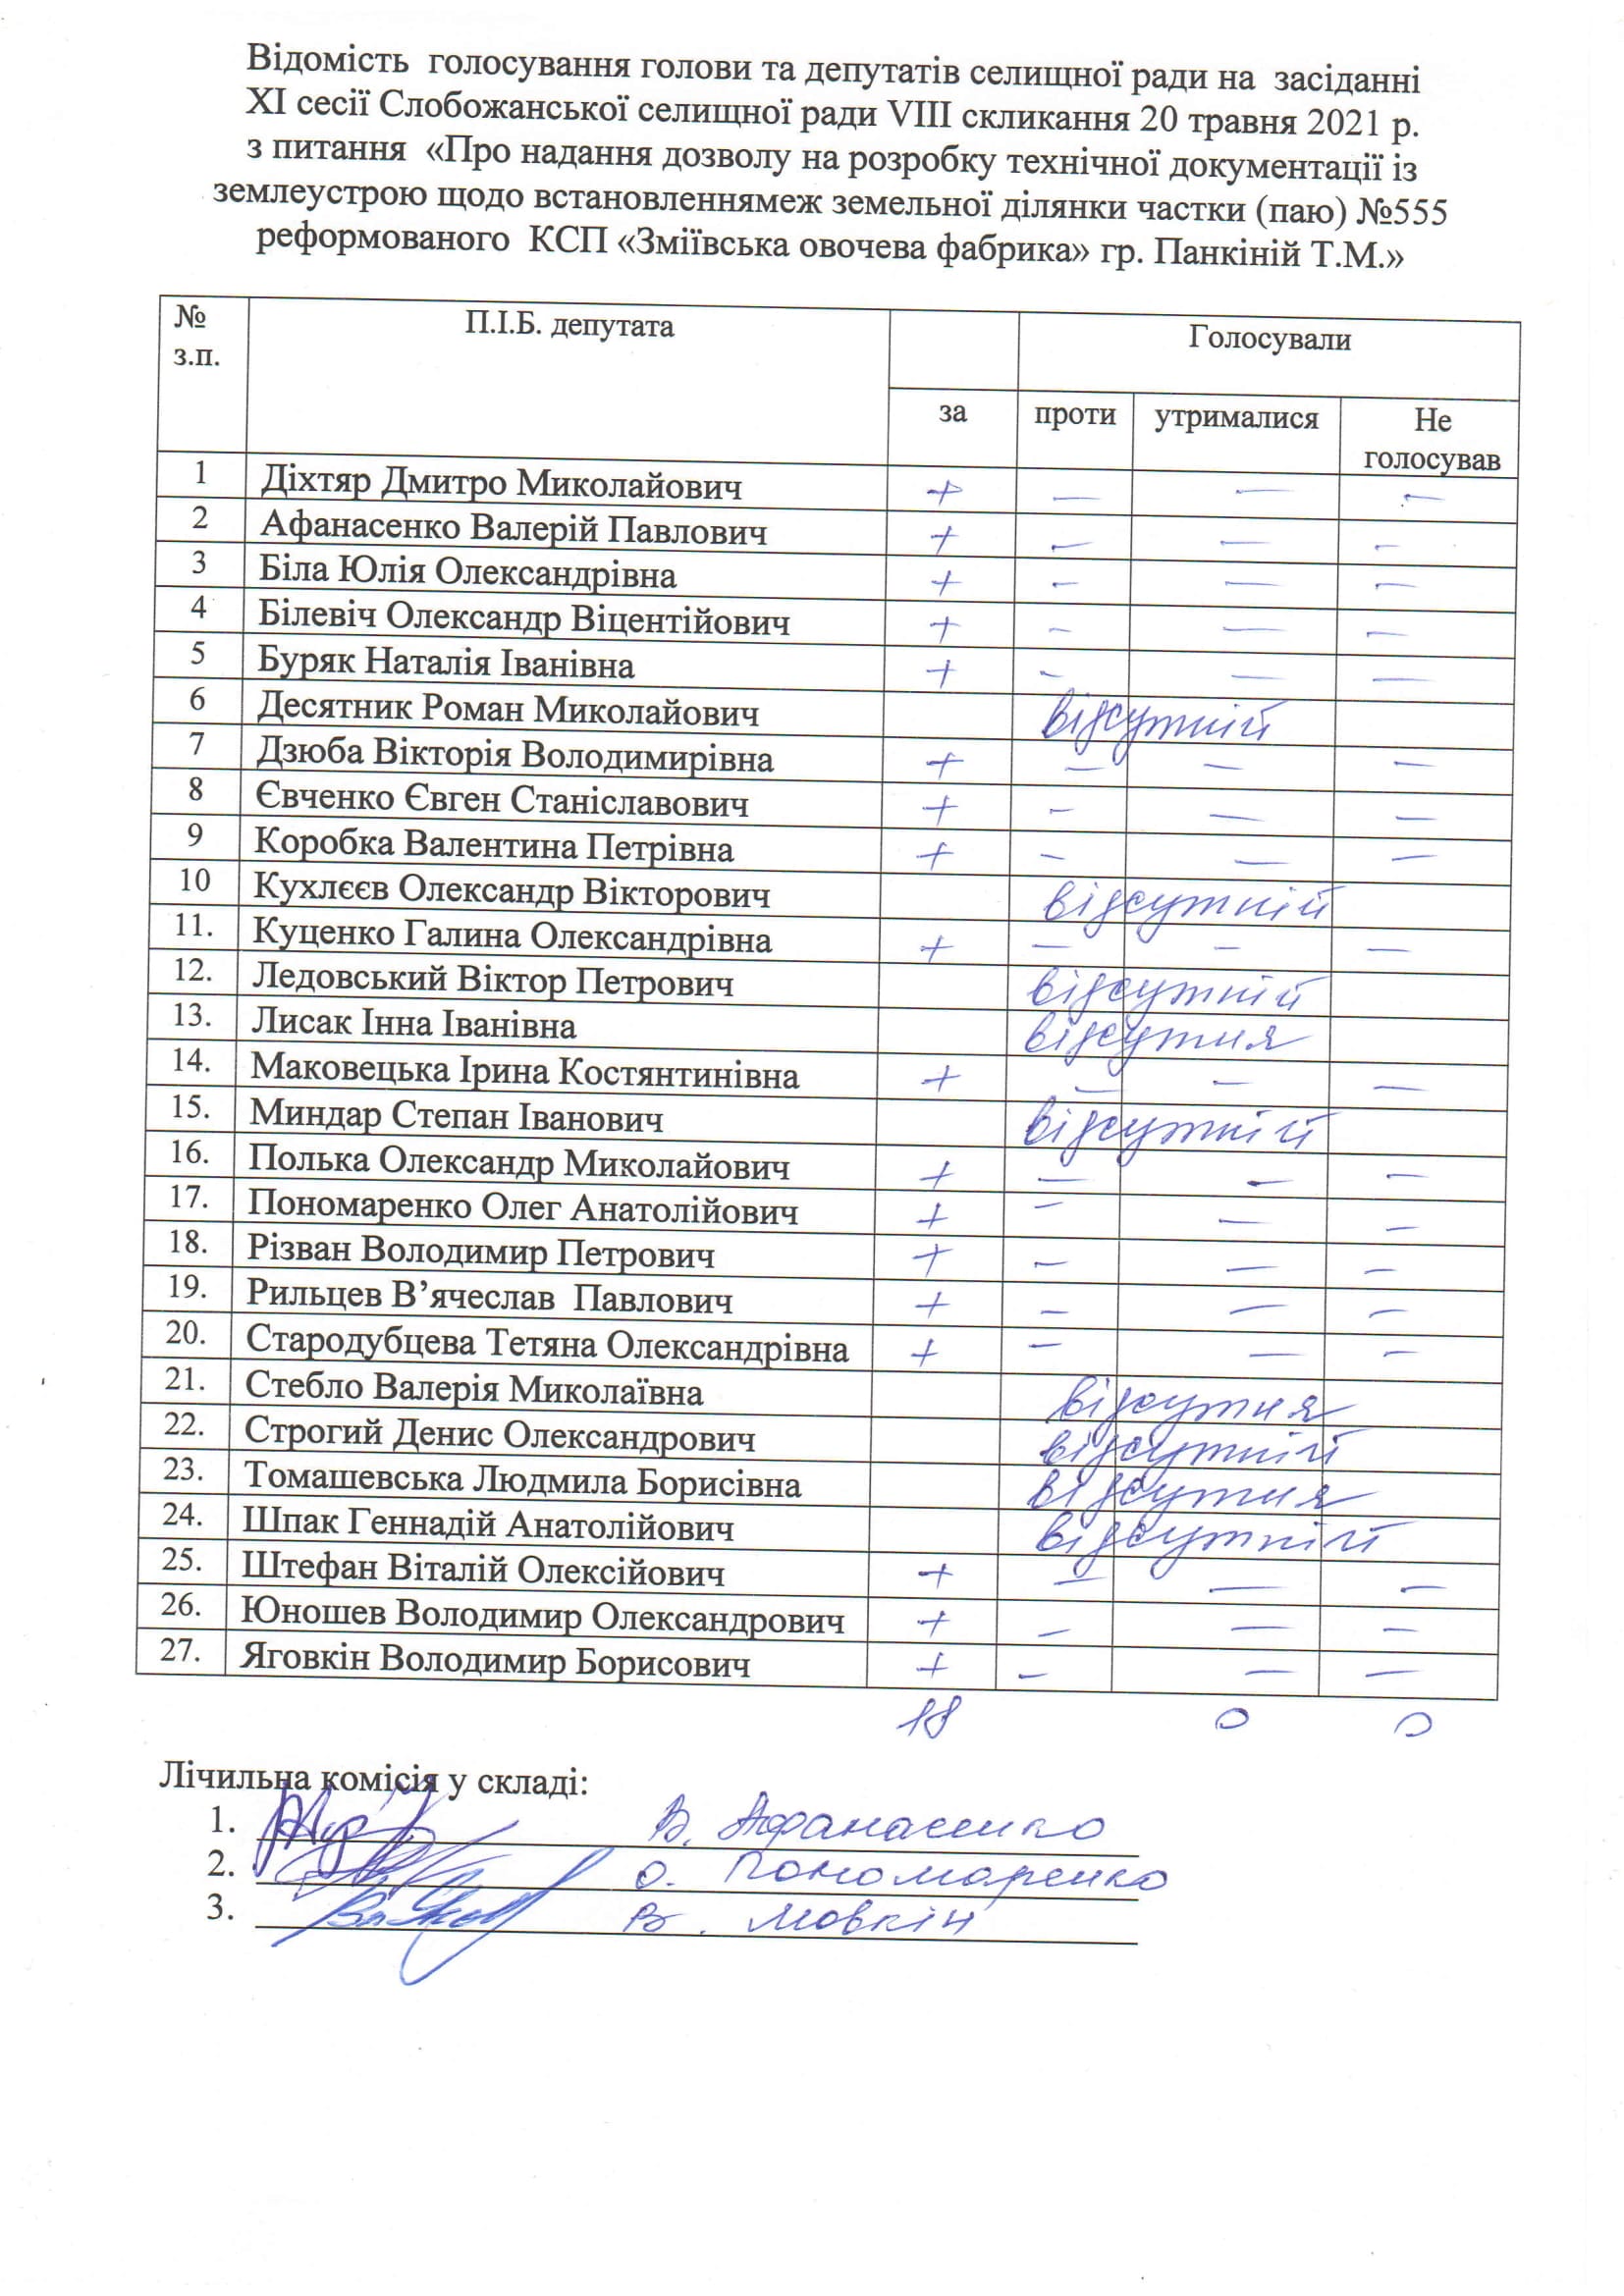 Відомість голосування голови та депутатів селищної ради на засіданні
ХІ сесії Слобожанської селищної ради VIII скликання 20 травня 2021 р.
з питання «Про надання дозволу на розробку технічної документації із
землеустрою щодо встановленнямеж земельної ділянки частки (паю) №555
реформованого КСП «Зміївська овочева фабрика» гр. Панкіній Т.М.»
№ з.п. П.І.Б. депутата Голосували
за проти утрималися Не голосував
1 Діхтяр Дмитро Миколайович + — — —
2 Афанасенко Валерій Павлович + — — —
3 Біла Юлія Олександрівна + — — —
4 Білевіч Олександр Віцентійович + — — —
5 Буряк Наталія Іванівна + — — —
6 Десятник Роман Миколайович відсутній
7 Дзюба Вікторія Володимирівна + — — —
8 Євченко Євген Станіславович + — — —
9 Коробка Валентина Петрівна + — — —
10 Кухлєєв Олександр Вікторович відсутній
11. Куценко Галина Олександрівна + — — —
12. Ледовський Віктор Петрович відсутній
13. Лисак Інна Іванівна відсутня
14. Маковецька Ірина Костянтинівна + — — —
15. Миндар Степан Іванович відсутній
16. Полька Олександр Миколайович + — — —
17. Пономаренко Олег Анатолійович + — — —
18. Різван Володимир Петрович + — — —
19. Рильцев В’ячеслав Павлович + — — —
20. Стародубцева Тетяна Олександрівна + — — —
21. Стебло Валерія Миколаївна відсутня
22. Строгий Денис Олександрович відсутній
23. Томашевська Людмила Борисівна відсутня
24. Шпак Геннадій Анатолійович відсутній
25. Штефан Віталій Олексійович + — — —
26. Юношев Володимир Олександрович + — — —
27. Яговкін Володимир Борисович + — — —
18 0 0
Лічильна комісія у складі:
1. В. Афанасенко
2. О. Пономаренко
3. В.